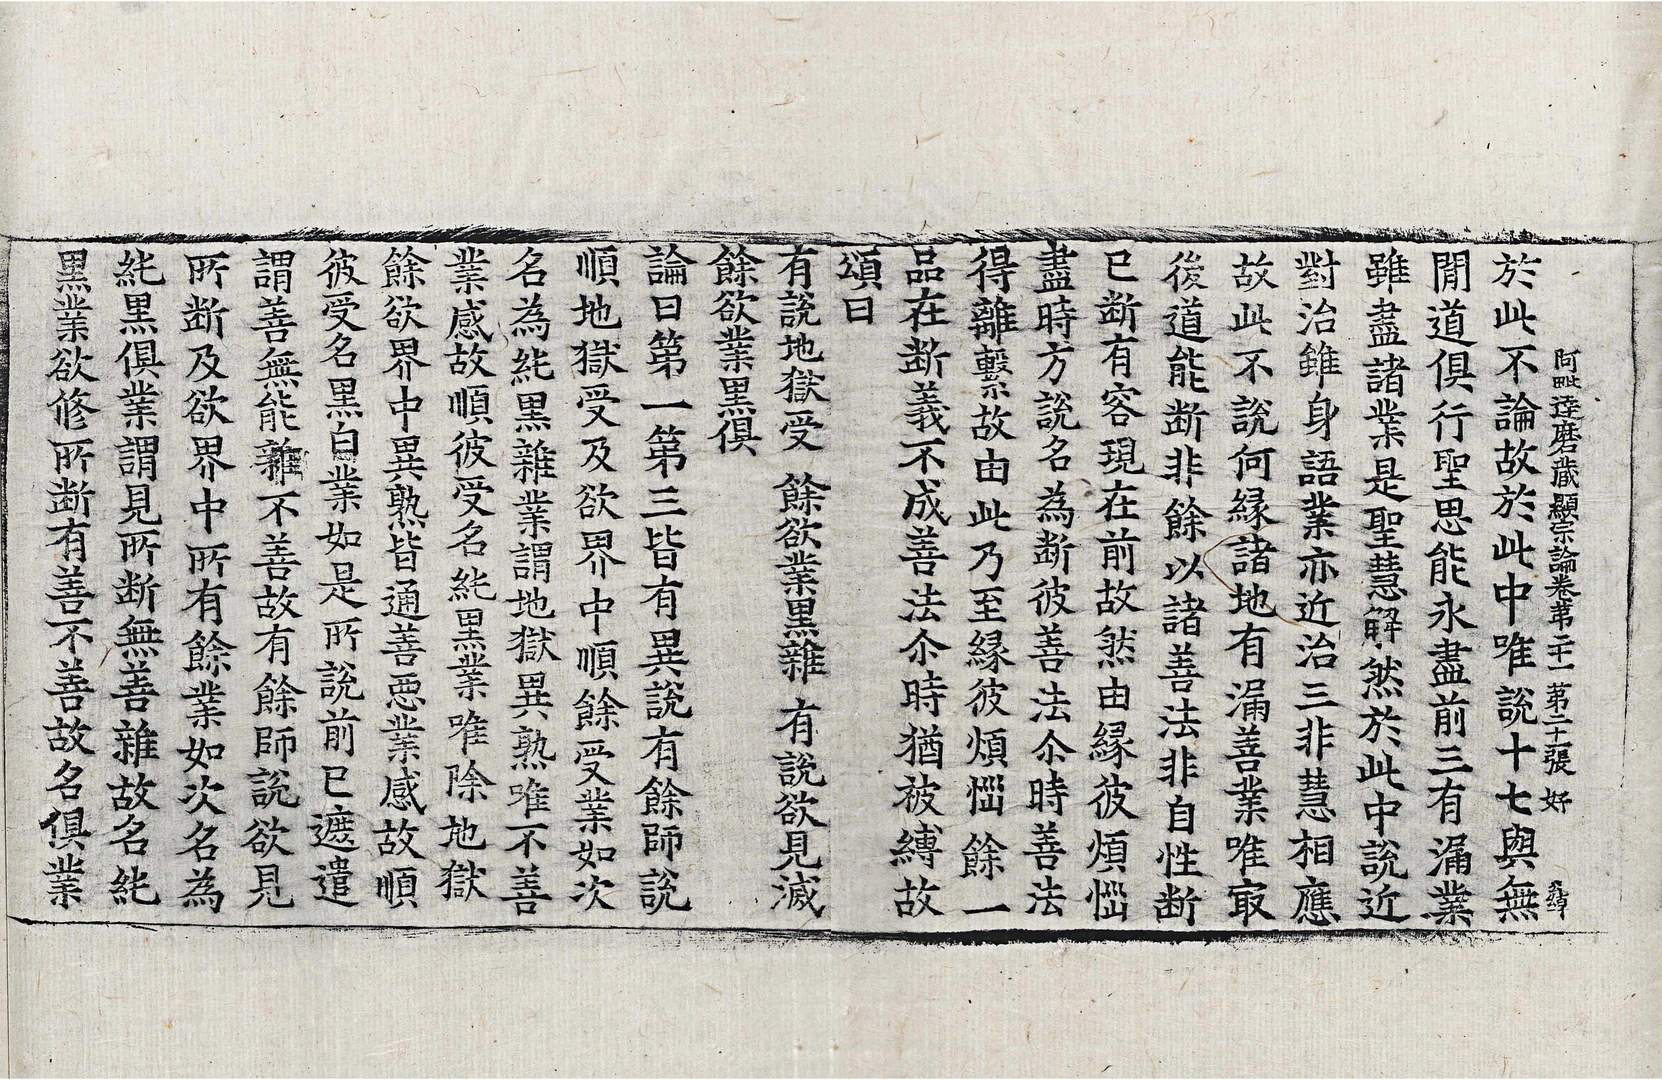 阿毗達磨藏顯宗論卷第二十一 第二十張 好
於此不論故於此中唯說十七與無
閒道俱行聖思能永盡前三有漏業
雖盡諸業是聖慧解然於此中說近
對治雖身語業亦近治三非慧相應
故此不說何緣諸地有漏善業唯㝡
後道能断非餘以諸善法非自性断
已断有容現在前故然由緣彼煩惱
盡時方說名為断彼善法尒時善法
得離繫故由此乃至緣彼煩惱餘一
品在断義不成善法尒時猶被縛故
頌曰
有說地獄受 餘欲業黑雜 有說欲見滅
餘欲業黑俱
論曰第一第三皆有異說有餘師說
順地獄受及欲界中順餘受業如次
名為純黑雜業謂地獄異熟唯不善
業感故順彼受名純黑業唯除地獄
餘欲界中異熟皆通善惡業感故順
彼受名黑白業如是所說前已遮遣
謂善無能雜不善故有餘師說欲見
所断及欲界中所有餘業如次名為
純黑俱業謂見所断無善雜故名純
黑業欲修所断有善不善故名俱業